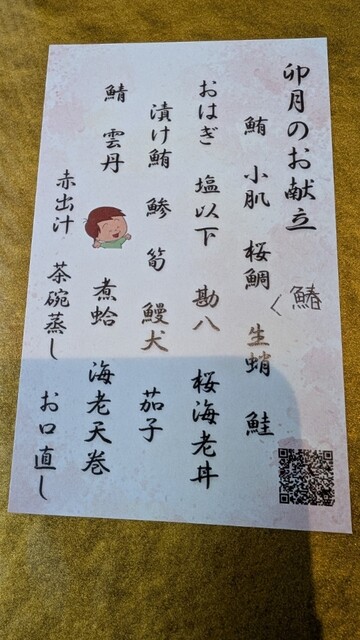 卯月のお献立
鮪 小肌 桜鯛 生蛸 鮭
く鰆
おはぎ 塩以下 勘八 桜海老丼
漬け鮪 鯵 筍 鰻犬 茄子
鯖 雲丹 煮蛤 海老天巻
赤出汁 茶碗蒸し お口直し